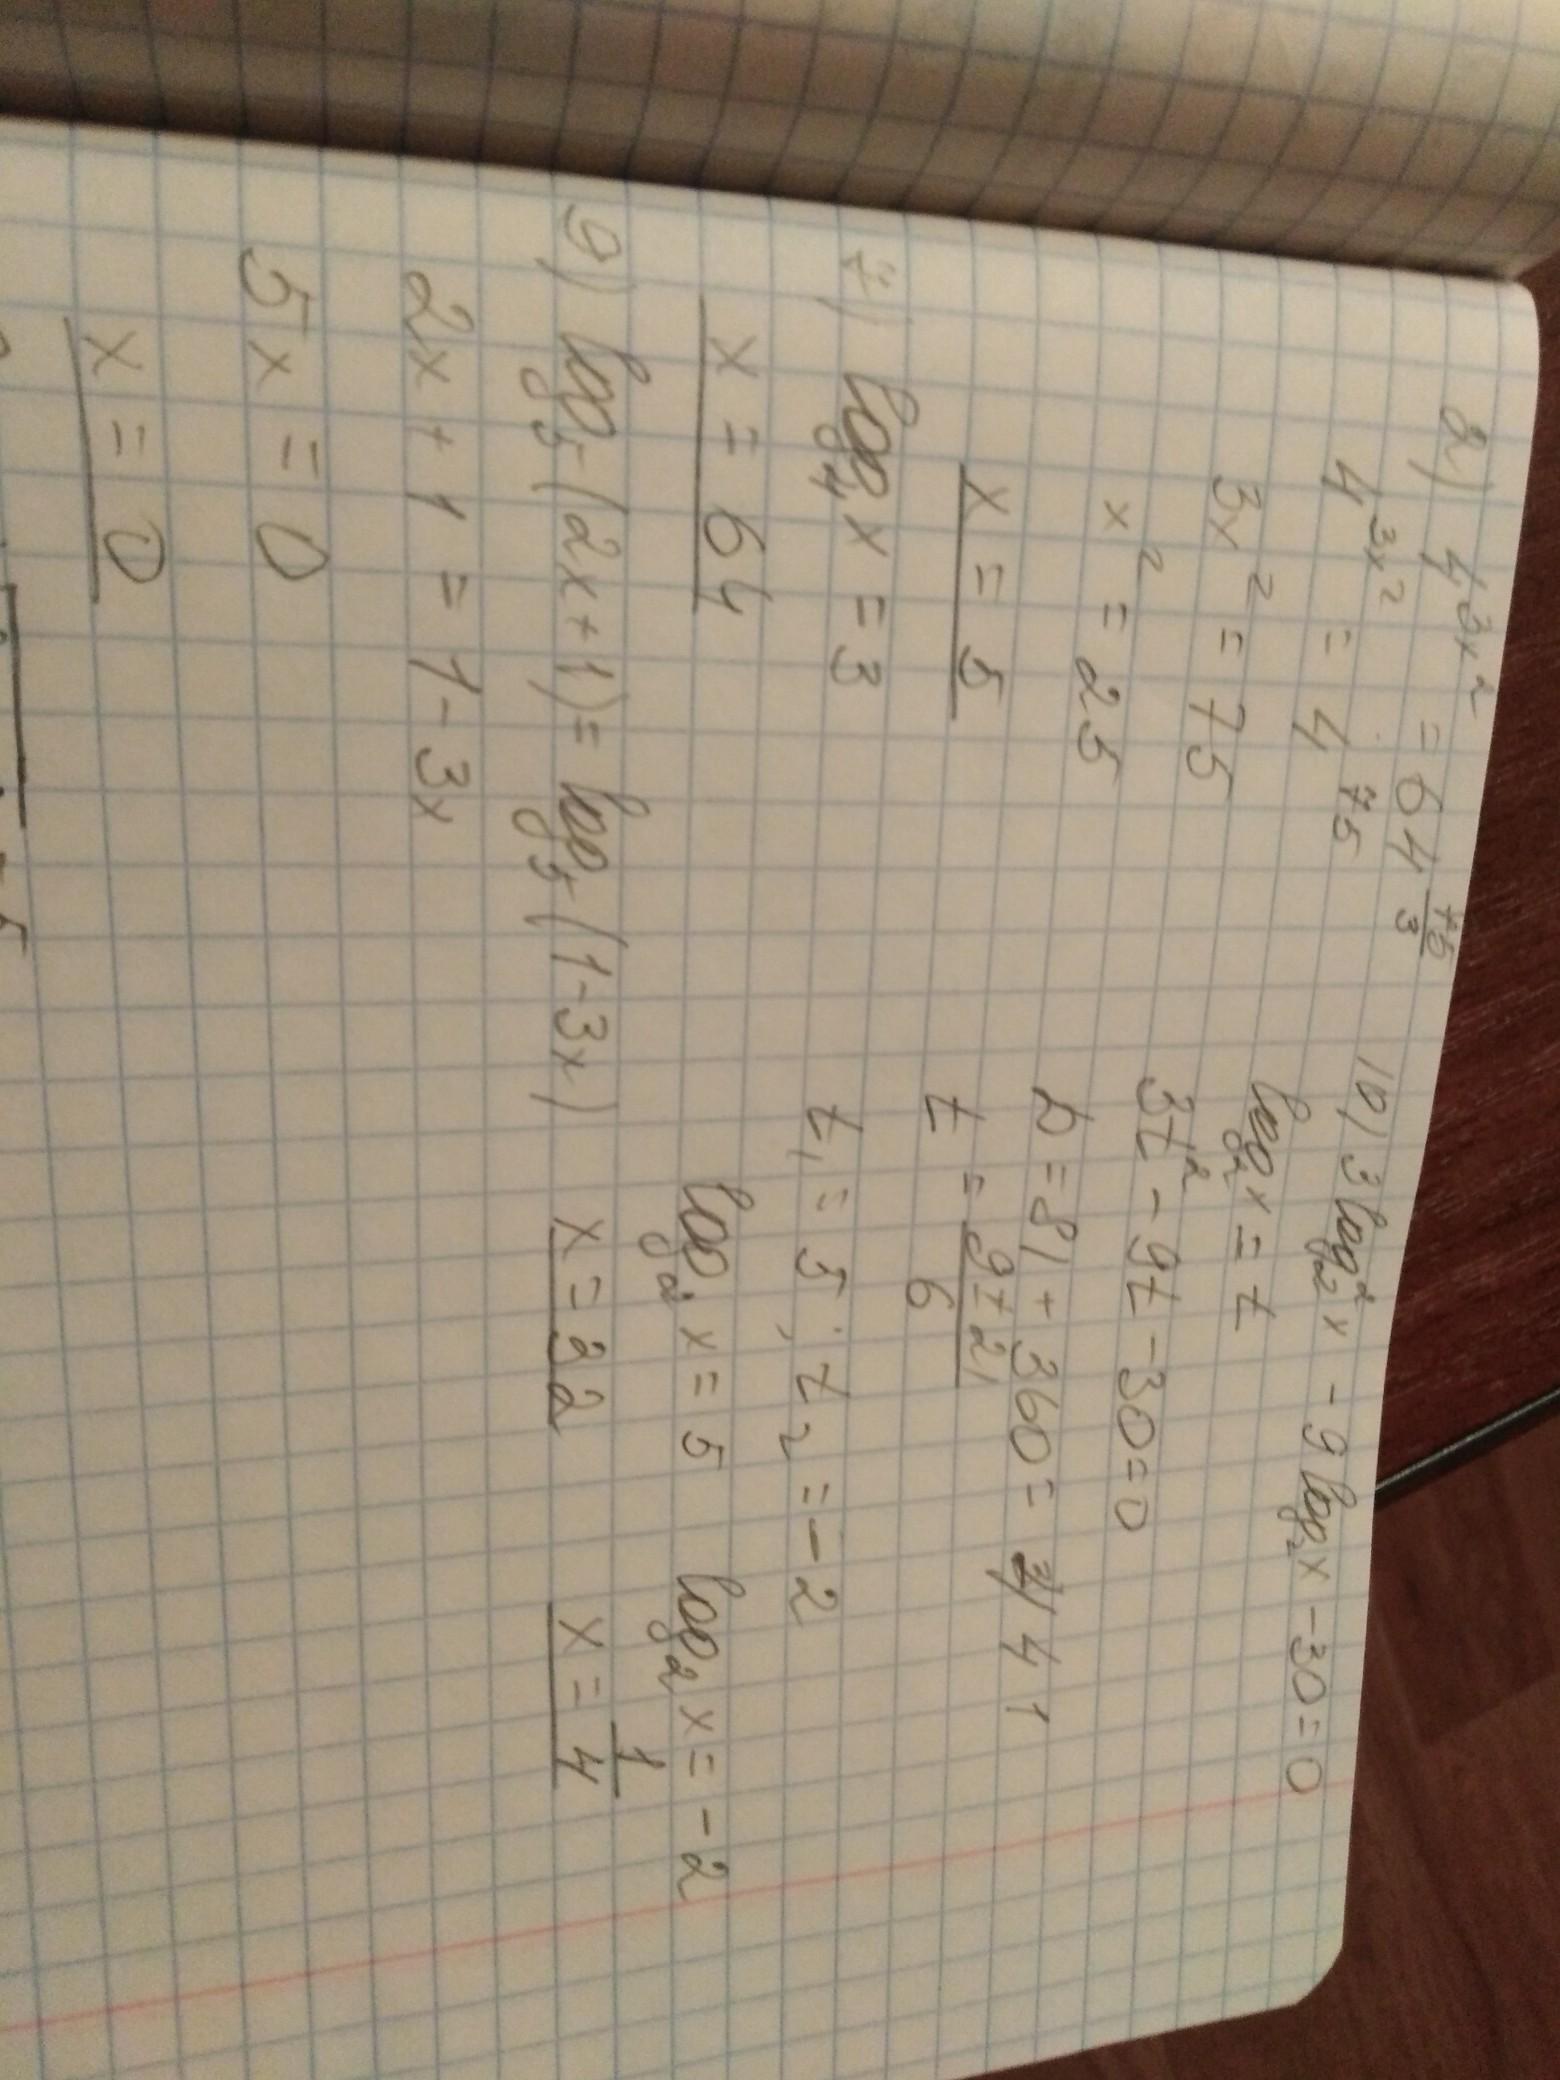 2) 4^{3x^2} = 64^{\frac{75}{3}}
4^{3x^2} = 4^{75}
3x^2 = 75
x^2 = 25
x = 5
7) log_4 x = 3
x = 64
9) log_5 (2x+1) = log_5 (1-3x)
2x + 1 = 1 - 3x
5x = 0
x = 0
10) 3 log_2^2 x - 9 log_2 x - 30 = 0
log_2 x = t
3t^2 - 9t - 30 = 0
D = 81 + 360 = 441
t = \frac{9 ± 21}{6}
t_1 = 5; t_2 = -2
log_2 x = 5 log_2 x = -2
x = 32 x = \frac{1}{4}